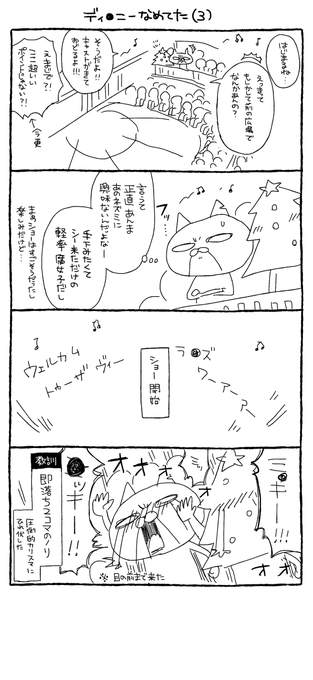 ディ●ニーなめてた(3)
はじまるね…
えっまって
もしかして前の広場で
なんかあんの?
そうだよ!!
キャストがきて
おどるよ!!!
まじで?!
ここ超いい
ポイントじゃない?!
←今更
言うて
正直あんま
あのネズミに
興味ないんだよなー
手下みたくて
シー来ただけの
軽率腐女子だし
まぁショーはすごそうだったし
楽しみだけど…
ラ●ズ
ワーアァー
ショー開始
ウェルカム
トゥーザヴィー
ミ●ギー!!
オオオ
オオ
●ッギー!!
※目の前まで来た
教訓
即落ち2コマのノリ
圧倒的カリスマに
ひれ伏した